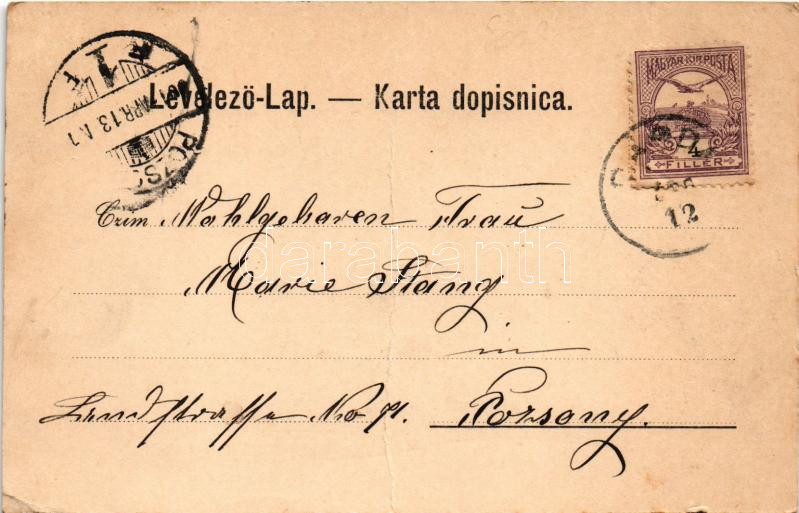 MAGYAR KIR. POSTA
4
FILLÉR
Levelező-Lap. — Karta dopisnica.
APR. 13
POZSO
12
Czím Wohlgeboren Frau
Marie Stang
in
Landstrasse No
Pozsony.
darabanth